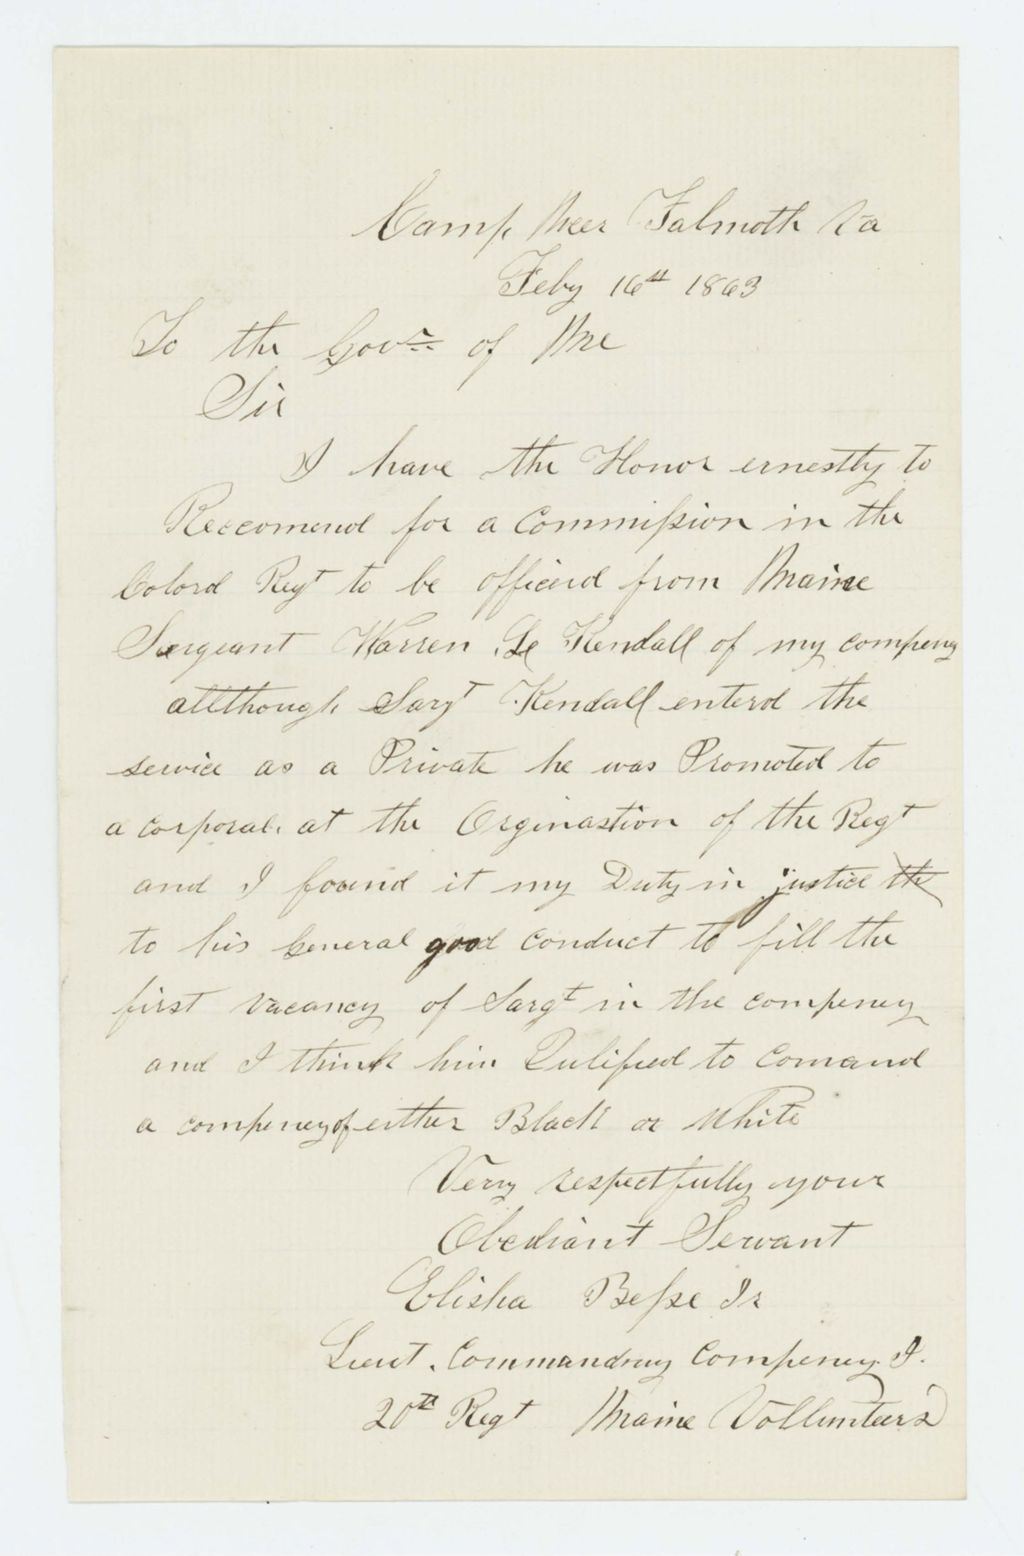 Camp Neer Falmoth Va
Feby 16th 1863
To the Govnr of Me
Sir
I have the Honor ernestly to
Reccomend for a Commission in the
Colord Regt to be officerd from Maine
Sergeant Warren L Kendall of my compeny
allthough Sargt Kendall enterd the
service as a Private he was Promoted to
a corporal. at the Orginastion of the Regt
and I found it my Duty in justice th
to his General good conduct to fill the
first vacancy of Sargt in the compeney
and I think him Qulified to Comand
a compeney of either Black or White
Very respectfully your
Obediant Servant
Elisha Besse Jr
Lieut. Commanding Compeney I.
20th Regt Maine Vollunteers